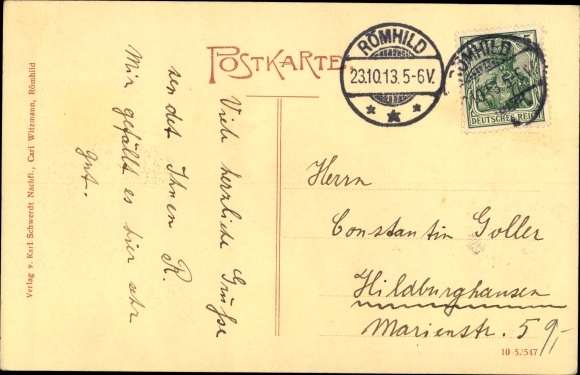 POSTKARTE.
RÖMHILD
23.10.13.5-6V.
RÖMHILD
5
DEUTSCHES REICH
Viele herzliche Grüße
sendet Ihnen R.
Mir gefällt es hier sehr
gut.
Herrn
Constantin Goller
Hildburghausen
Marienstr. 59,-
Verlag v. Karl Schwerdt Nachfl., Carl Witzmann, Römhild
10 5.2547